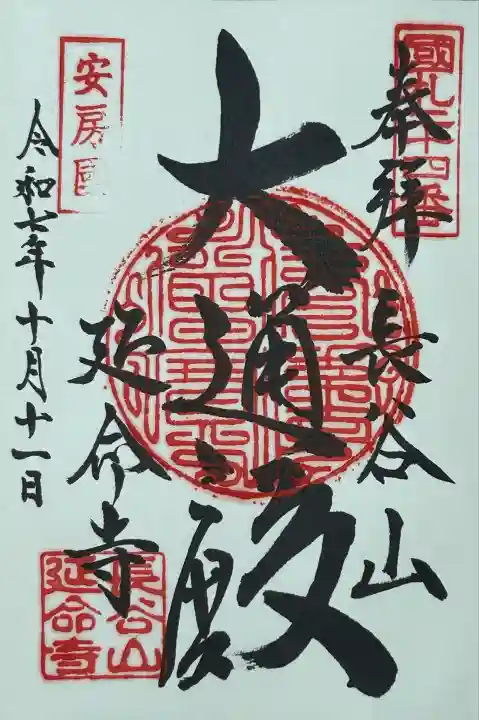 國札二十四番
奉拜
長谷山
大通殿
安房國
延命寺
令和七年十月十一日
長谷山
延命寺